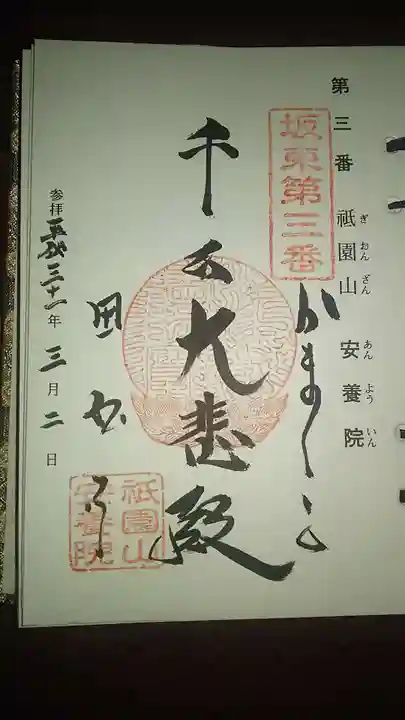 第三番 祇園山 安養院
ぎおんざん あんよういん
坂東第三番
かまくら
千手大悲殿
田代寺
祇園山
安養院
参拝 平成三十一年 三月二日